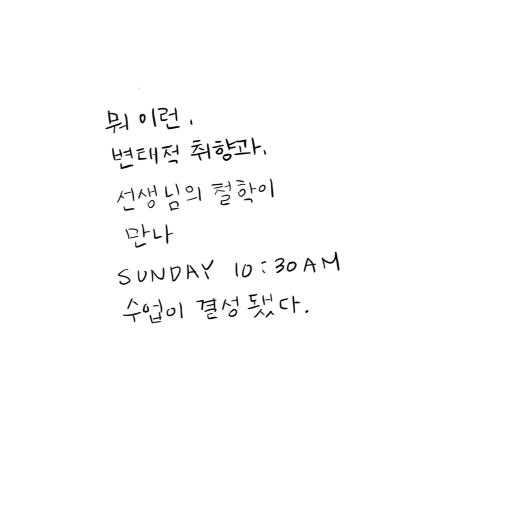 뭐 이런,
변태적 취향과,
선생님의 철학이
만나
SUNDAY 10:30AM
수업이 결성됐다.